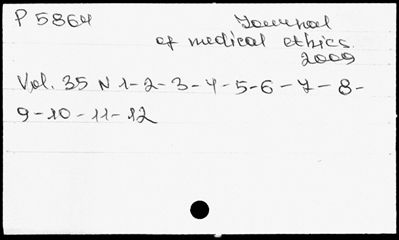 P 5864 Journal
of medical ethics.
2009
Vol. 35 N 1-2-3-4-5-6-7-8-
9-10-11-12